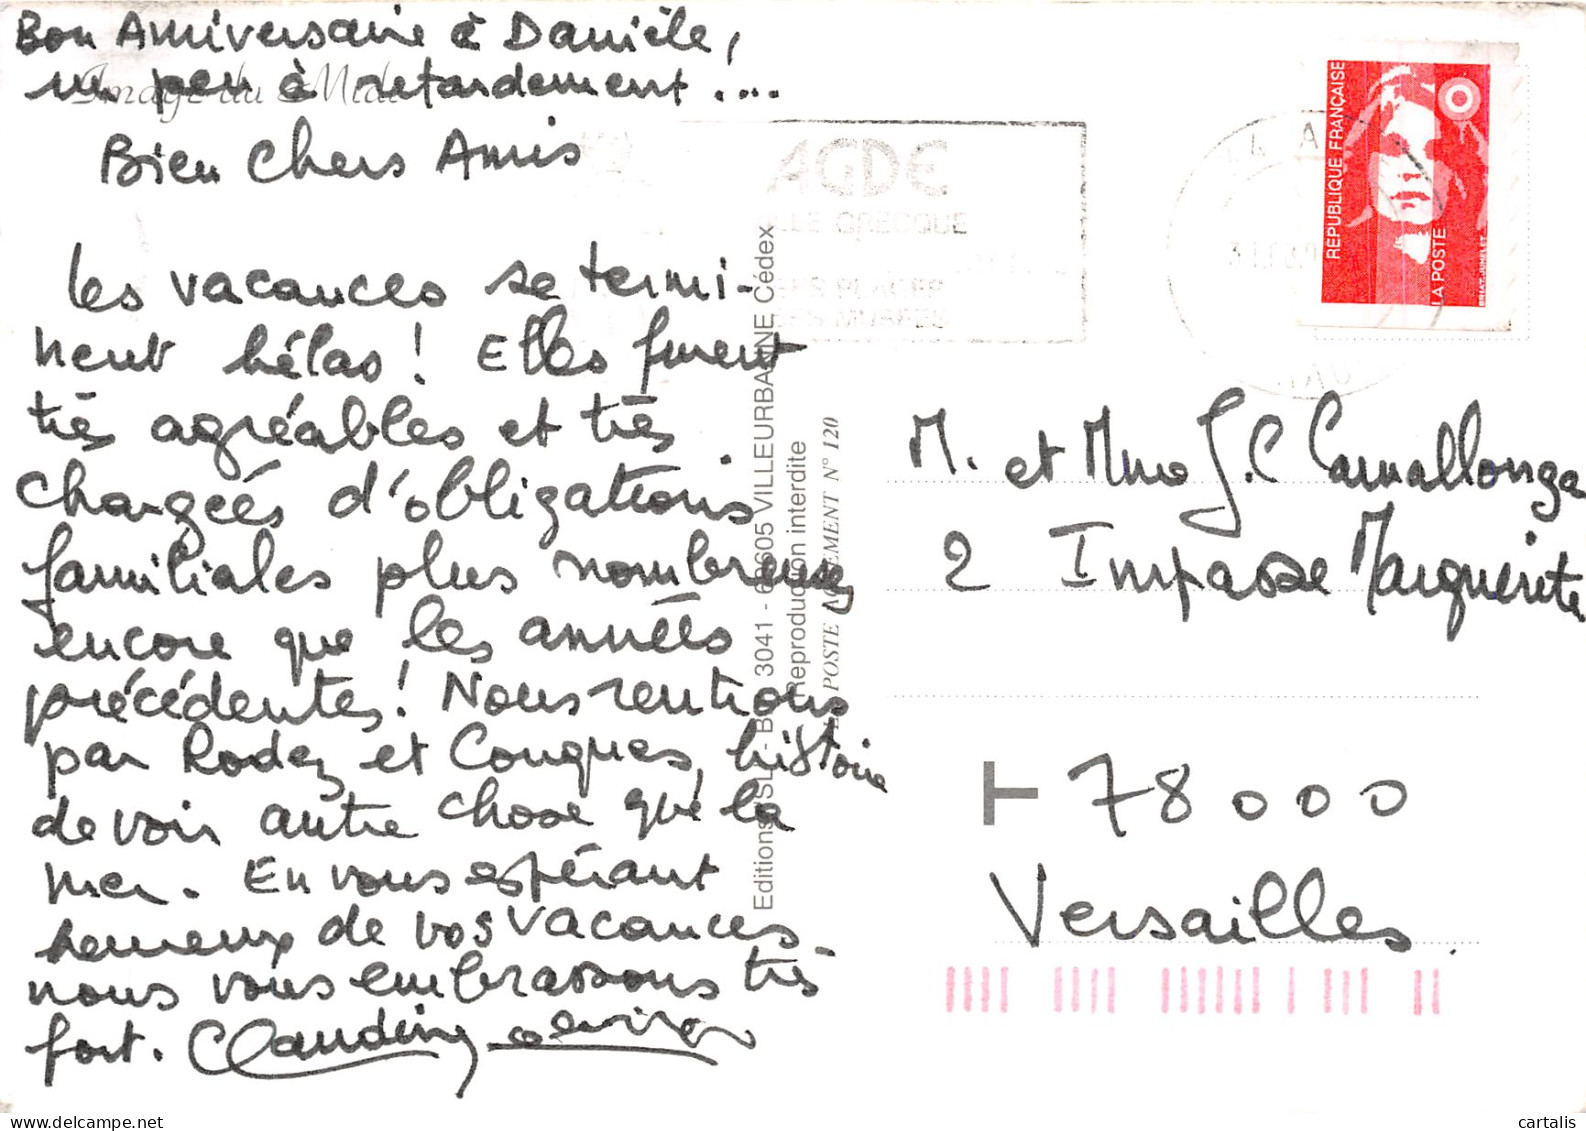 Bon Anniversaire à Danièle,
un peu à retardement....
Image du Midi
Bien Chers Amis
Les vacances se termi-
nent hélas ! Elles furent
très agréables et très
chargées d'obligations
familiales plus nombreuses
encore que les années
précédentes ! Nous rentrons
par Rodez et Conques, histoire
de voir autre chose que la
mer. En vous espérant
heureux de vos vacances
nous vous embrassons très
fort. Claudine
AGDE
GRECQUE
RÉPUBLIQUE FRANÇAISE
LA POSTE
Editions SL - 3041 - 69605 VILLEURBANNE Cédex
Reproduction interdite
POSTE AGRÉMENT N° 120
M. et Mme J.C
2 Impasse Marguerite
T 78000
Versailles
cartalis